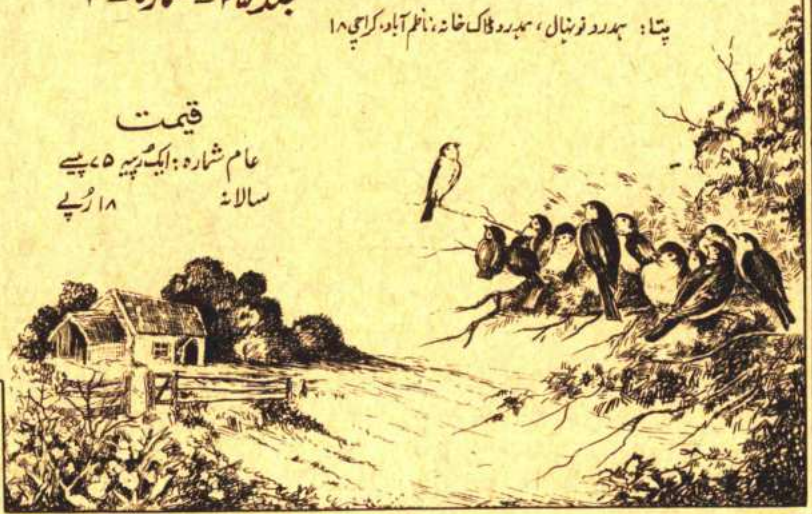 جلد
پتا: ہمدرد نونہال، ہمدرد ڈاک خانہ، ناظم آباد، کراچی ۱۸
قیمت
عام شمارہ: ایک رُپیہ ۷۵ پیسے
سالانہ ۱۸ رُپے